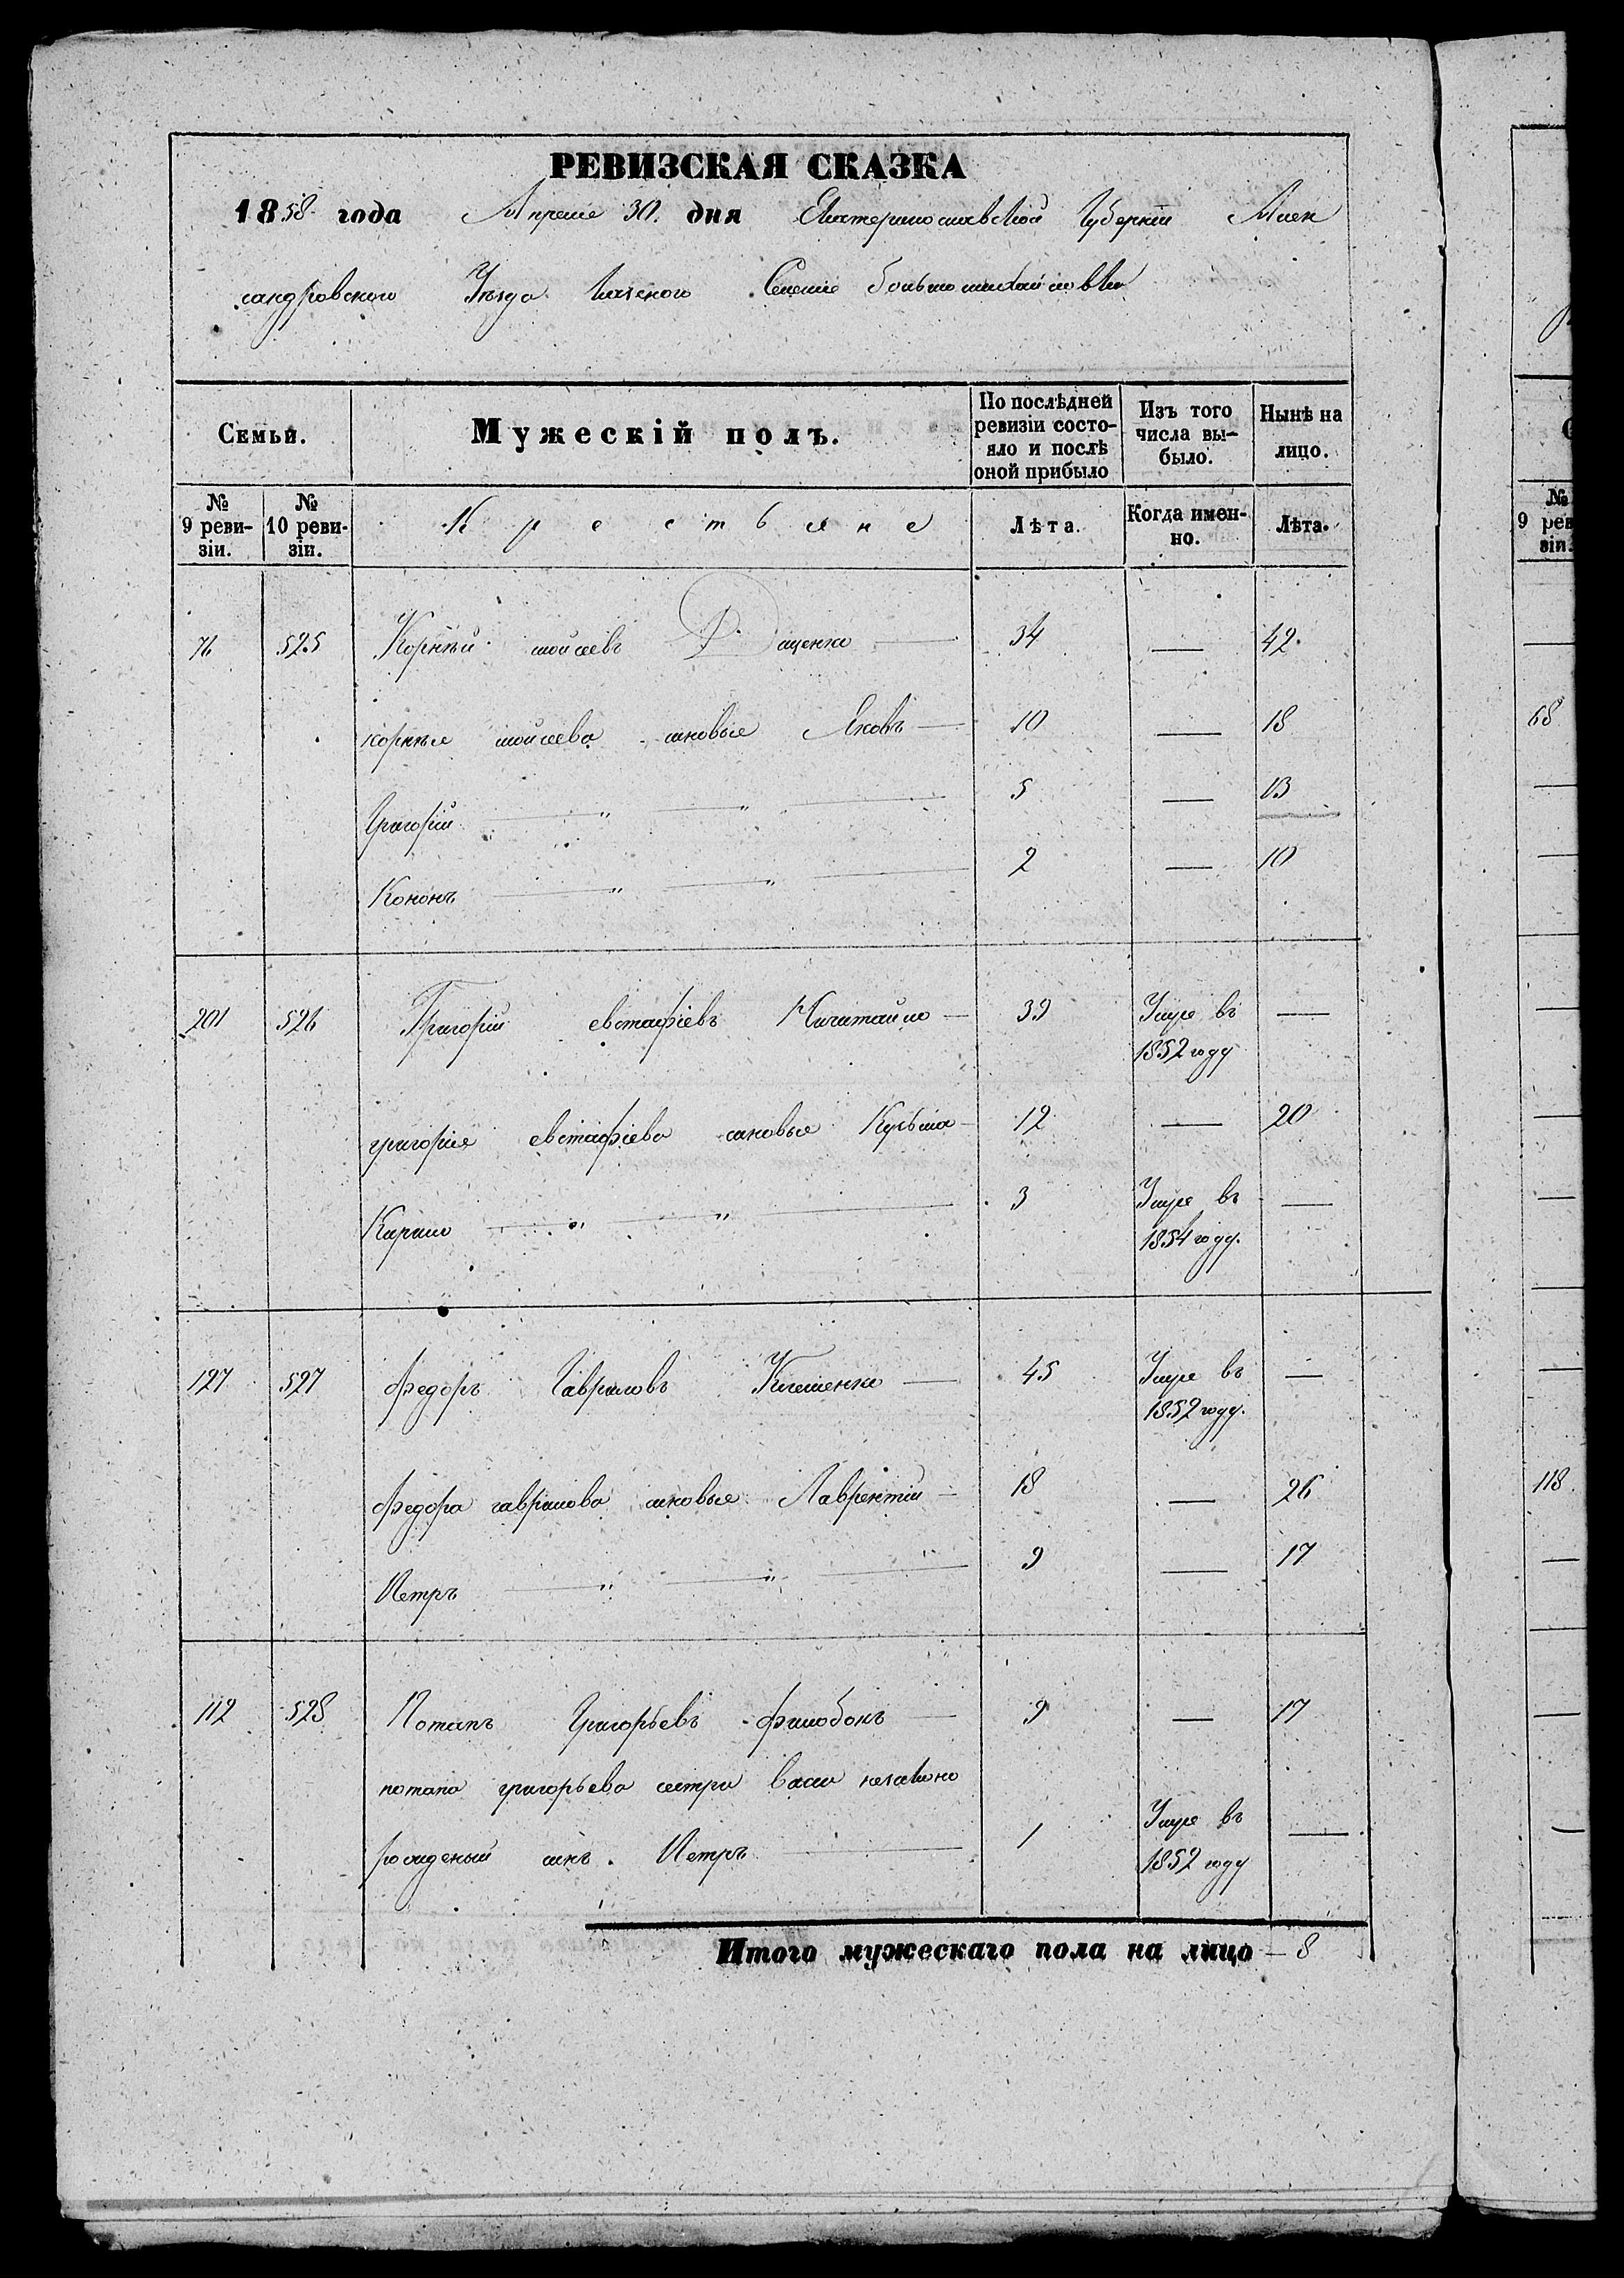 РЕВИЗСКАЯ СКАЗКА
1858 года Апреля 30. дня Екатеринославской Губернии Алек
сандровского Уезда Казеного Селение большомихайловки
Семьи.
Мужескій полъ.
По послѣдней ревизіи состо-
яло и послѣ
оной прибыло
Изъ того
числа вы-
было.
Нынѣ на
лицо.
№
9 реви-
зіи.
№
10 реви-
зіи.
Крестьяне
Лѣта.
Когда имен-
но.
Лѣта.
76 525 Корнѣй мойсеевъ Даценко — 34 — 42.
корнѣя мойсеева сыновье Яковъ — 10 — 18
Григорій — " — " — 5 — 13
Кононъ — " — " — 2 — 10
201 526 Григорій евстафіевъ — 39 Умре въ —
1852 году
григорія евстафіева сыновье Кузьма 12 — 20
Кирило — " — " — 3 Умре въ —
1854 году.
127 527 Федоръ Гавриловъ Клименко — 45 Умре въ —
1852 году.
Федора гаврилова сыновье Лаврентій — 18 — 26
Петръ — " — " — 9 — 17
112 528 Потапъ Григорьевъ — 9 — 17
потапа григорьева сестри незаконо
рожденый сынъ. Петръ — 1 Умре въ —
1852 году
Итого мужескаго пола на лицо — 8
№
9 рев
зіи.
68
118